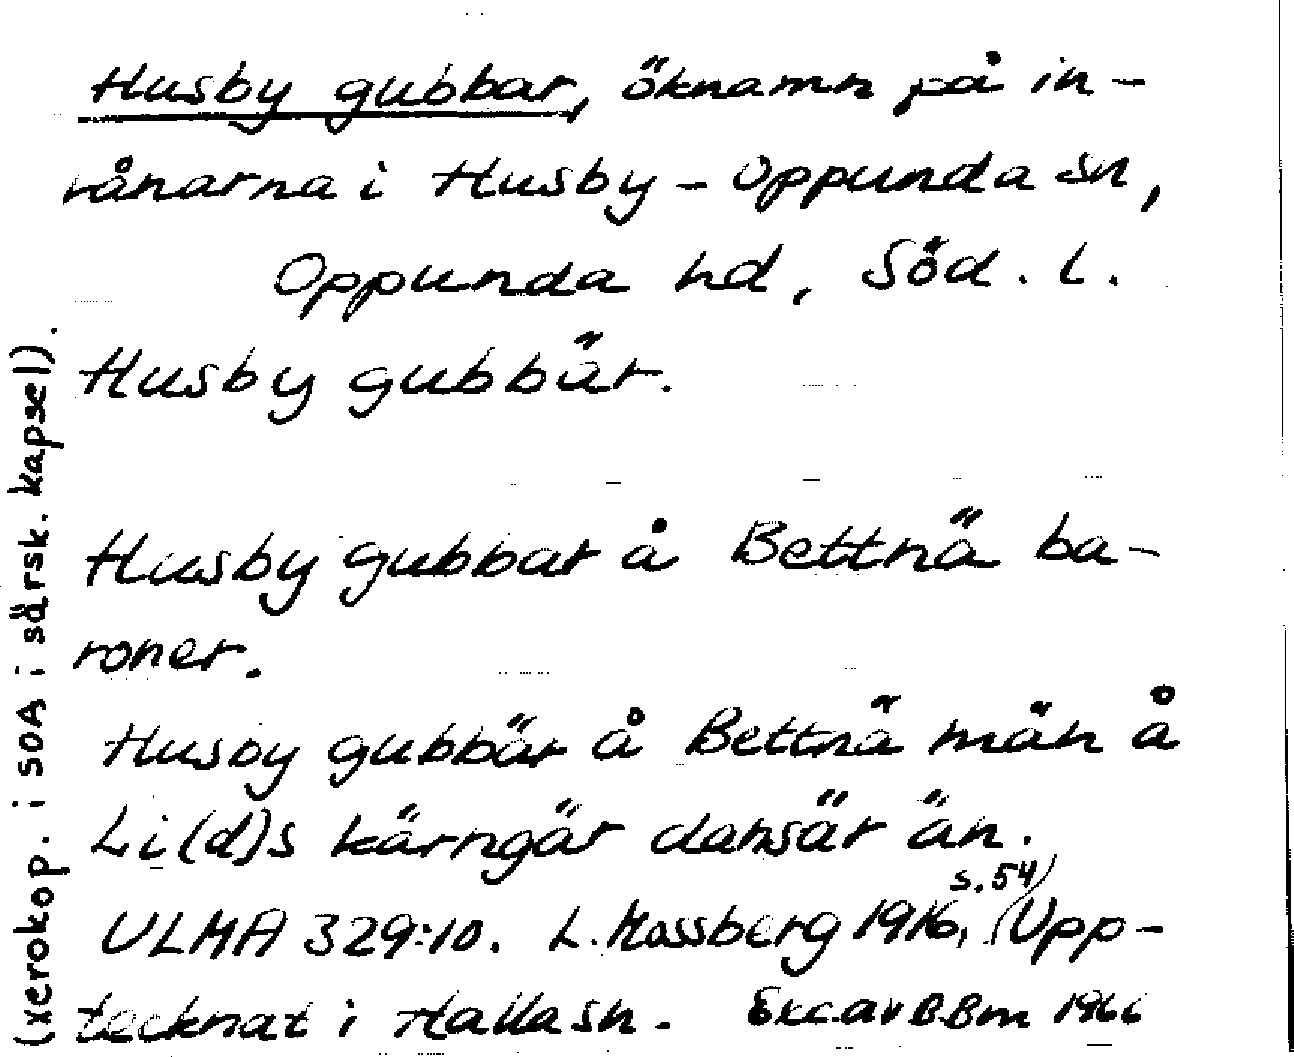 Husby gubbar, öknamn på in-
vånarna i Husby-Oppunda sn,
Oppunda hd, Söd. l.
Husby gubbär.
Husby gubbar å Bettnä ba-
roner.
Husby gubbär å Bettnä män å
Li(d)s kärngär dansär än.
s.54
ULMA 329:10. L. Mossberg 1916, Upp-
tecknat i Halla sn. Exc av B.Bm 1966
(xerokop. i SOA i särsk. kapsel).